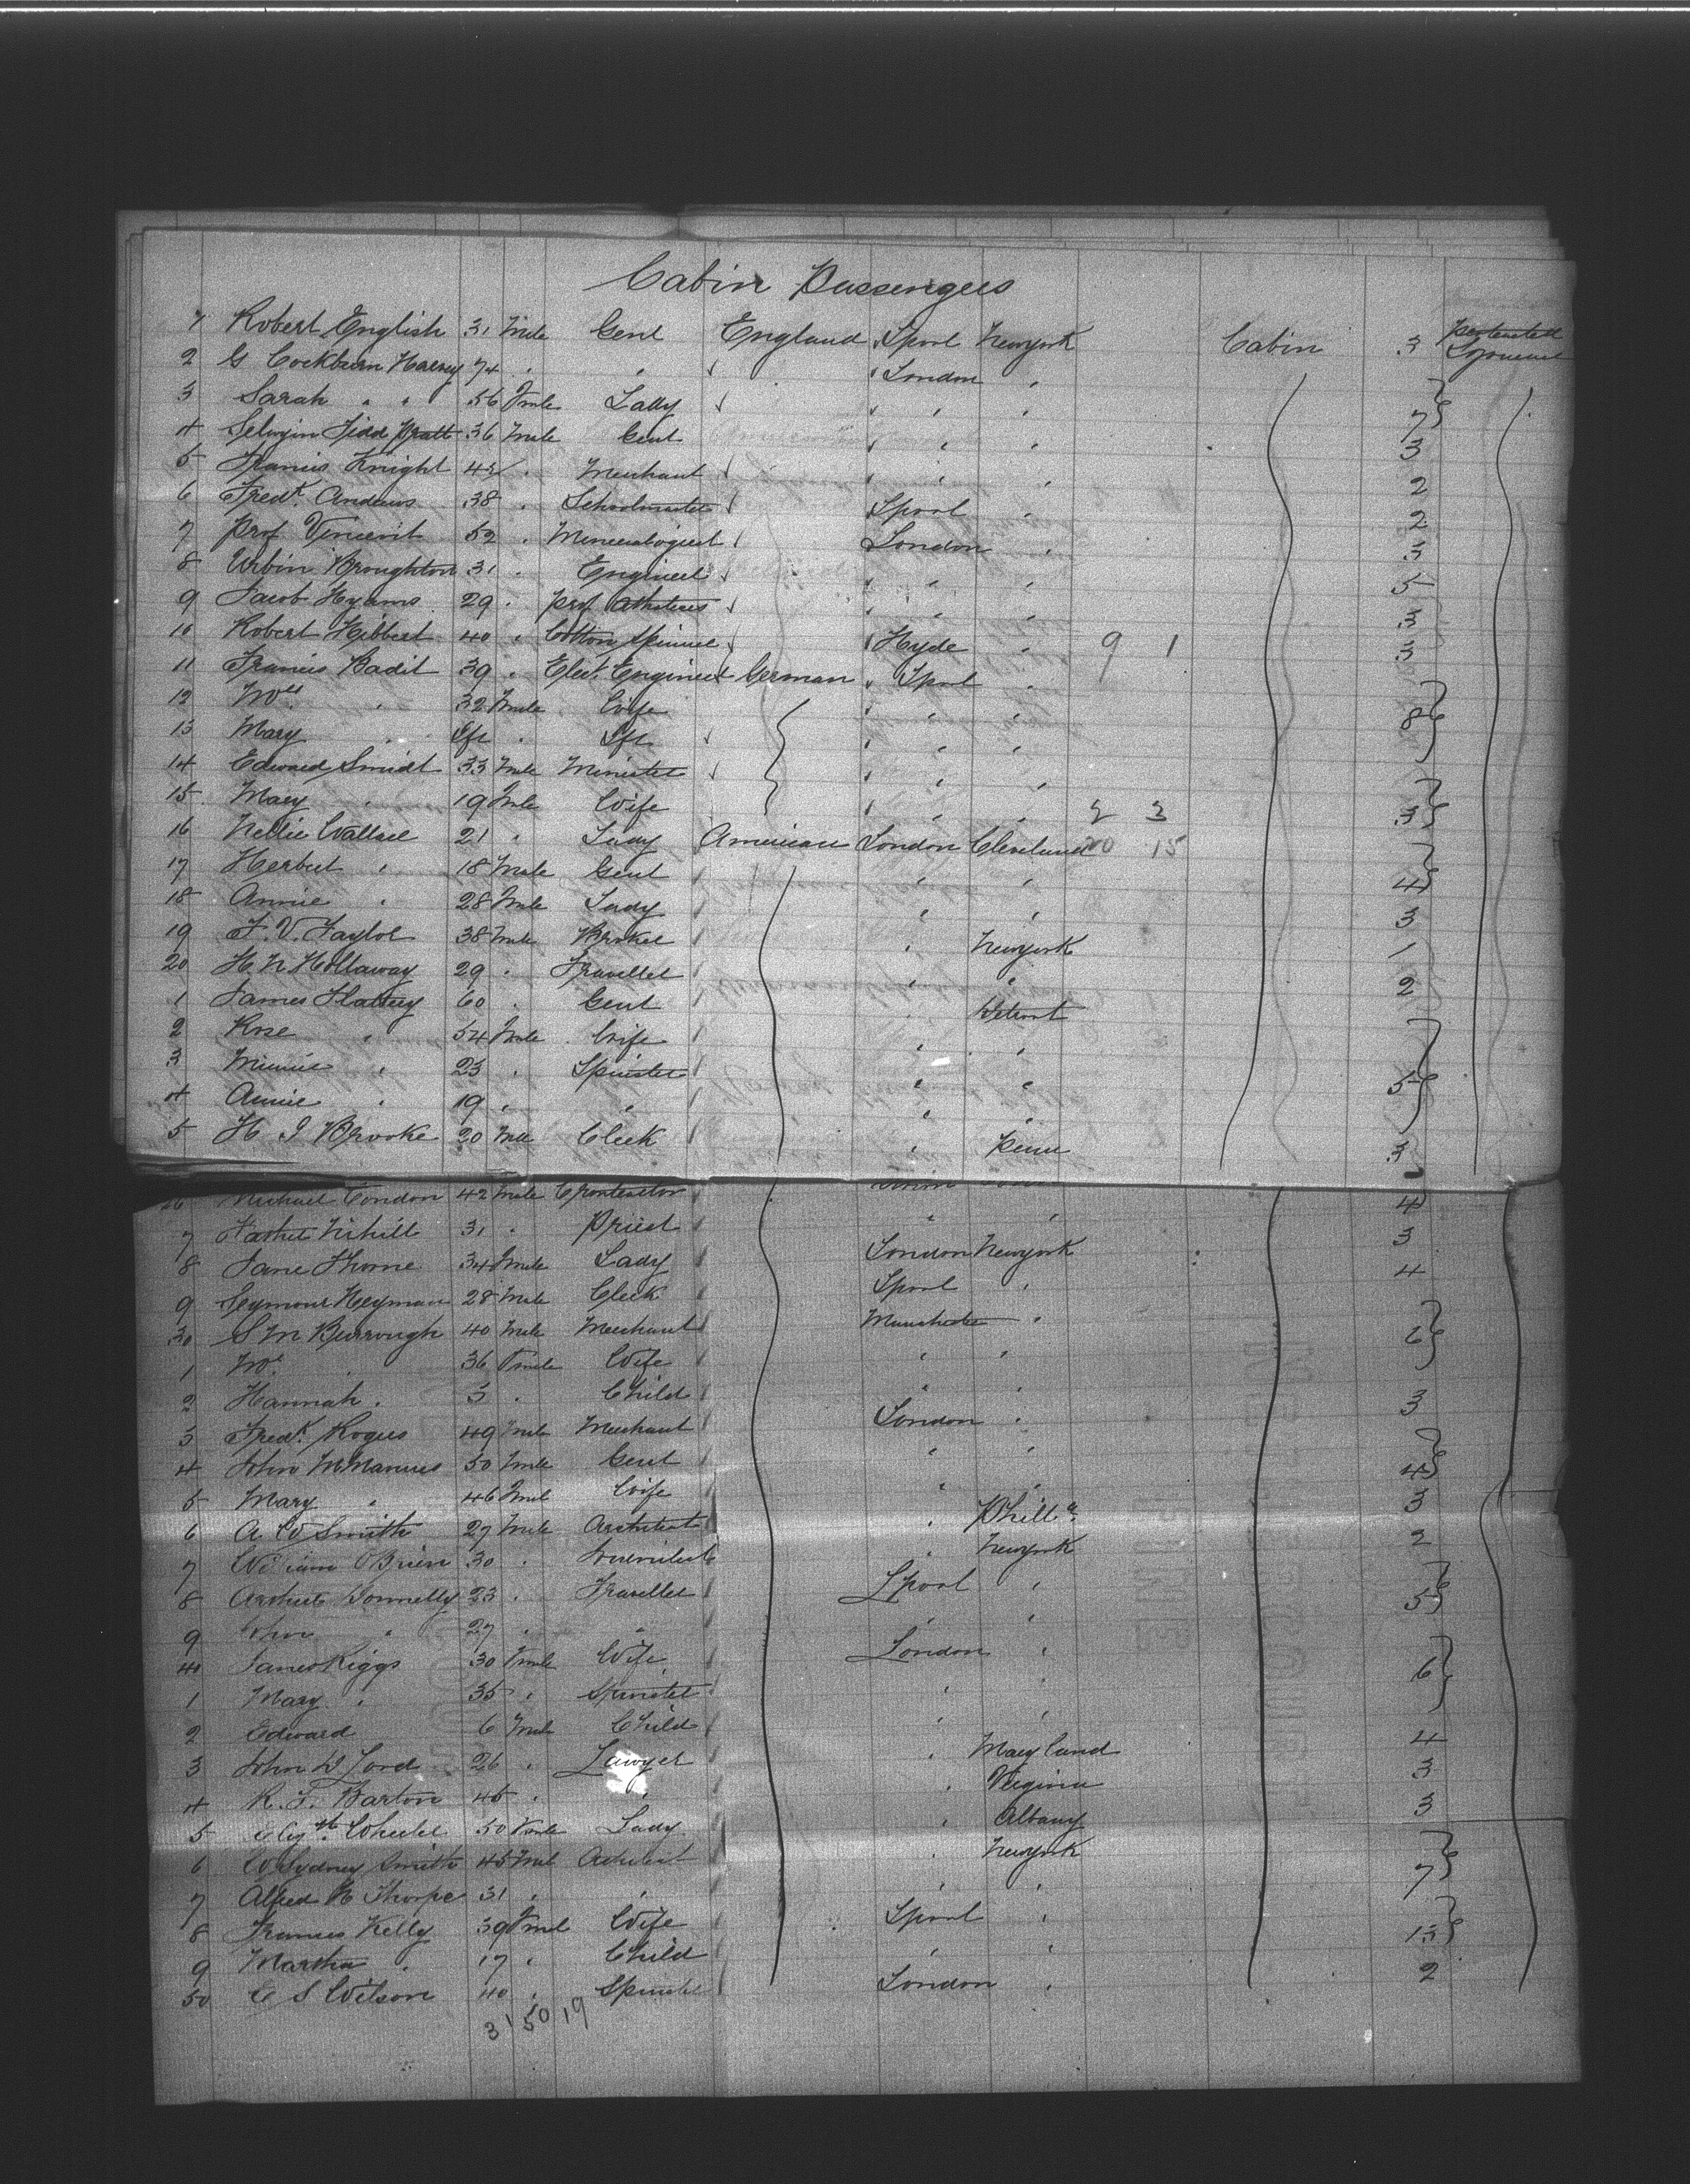 Cabin Passengers
1 Robert English 31 Male Gent England Lpool Newyork Cabin 3
2 G Cockburn Harvey 74 " " London "
3 Sarah " " 56 Fmle Lady " " 7
4 Selwyn Tidd Pratt 36 Male Gent " " 3
5 Francis Knight 42 " Merchant " " 2
6 Fredk Andrews 38 " Schoolmaster Lpool " 2
7 Prof Vincent 52 " Mineralogist London " 3
8 Urbin Broughton 31 " Engineer " " 5
9 Jacob Hyams 29 " prof " " 3
10 Robert Hibbert 40 " Cotton Spinner Hyde " 9 1 3
11 Francis Badit 39 " Elect. Engineer German Lpool "
12 Mrs " 32 Fmle Wife " " 8
13 Mary " Ift " Ift " "
14 Edward Smidt 33 Male Minister " "
15 Mary " 19 Fmle Wife " " 2 3 3
16 Nellie Wallace 21 " Lady American London Cleveland 20 15
17 Herbert " 18 Male Gent " " 4
18 Annie " 28 Fmle Lady " " 3
19 F. V. Taylor 38 Male Broker " Newyork 1
20 H. N. Hollaway 29 " Traveller " " 2
1 James Flattery 60 " Gent " Detroit
2 Rose " 54 Fmle Wife " "
3 Minnie " 23 " Spinster " " 5
4 Annie " 19 " " " "
5 H J Brooke 20 Male Clerk " Penn 3
26 Michael Condon 42 Male Contractor 4
7 Father Nihill 31 " Priest " " 3
8 Jane Thorne 34 Fmle Lady London Newyork 4
9 Seymour Heyman 28 Male Clerk Lpool "
30 S M Burrough 40 Male Merchant Manchester " 6
1 Mrs " 36 Fmle Wife " "
2 Hannah " 3 " Child " " 3
3 Fredk. Rogers 49 Male Merchant London "
4 John McManus 50 Male Gent " " 4
5 Mary " 46 Fmle Wife " " 3
6 A W Smith 27 Male Architect " Phill a. 2
7 William O'Brien 30 " Journilist " Newyork
8 Arthur Donnelly 23 " Traveller Lpool " 5
9 John " 27 " " " "
40 James Riggs 30 Fmle Wife London " 6
1 Mary " 35 " Spinster " "
2 Edward 6 Male Child " " 4
3 John D Lord 26 " Lawyer " Maryland 3
4 R. T. Barton 45 " " " Virginia 3
5 Elizth Wheeler 50 Fmle Lady " Albany
6 W Sydney Smith 45 Male Architect " Newyork 7
7 Alfred H Thorpe 31 " " " "
8 Frances Kelly 39 Fmle Wife Lpool " 13
9 Martha " 17 " Child " " 2
50 E S Wilson 40 " Spinster London "
31 50 19